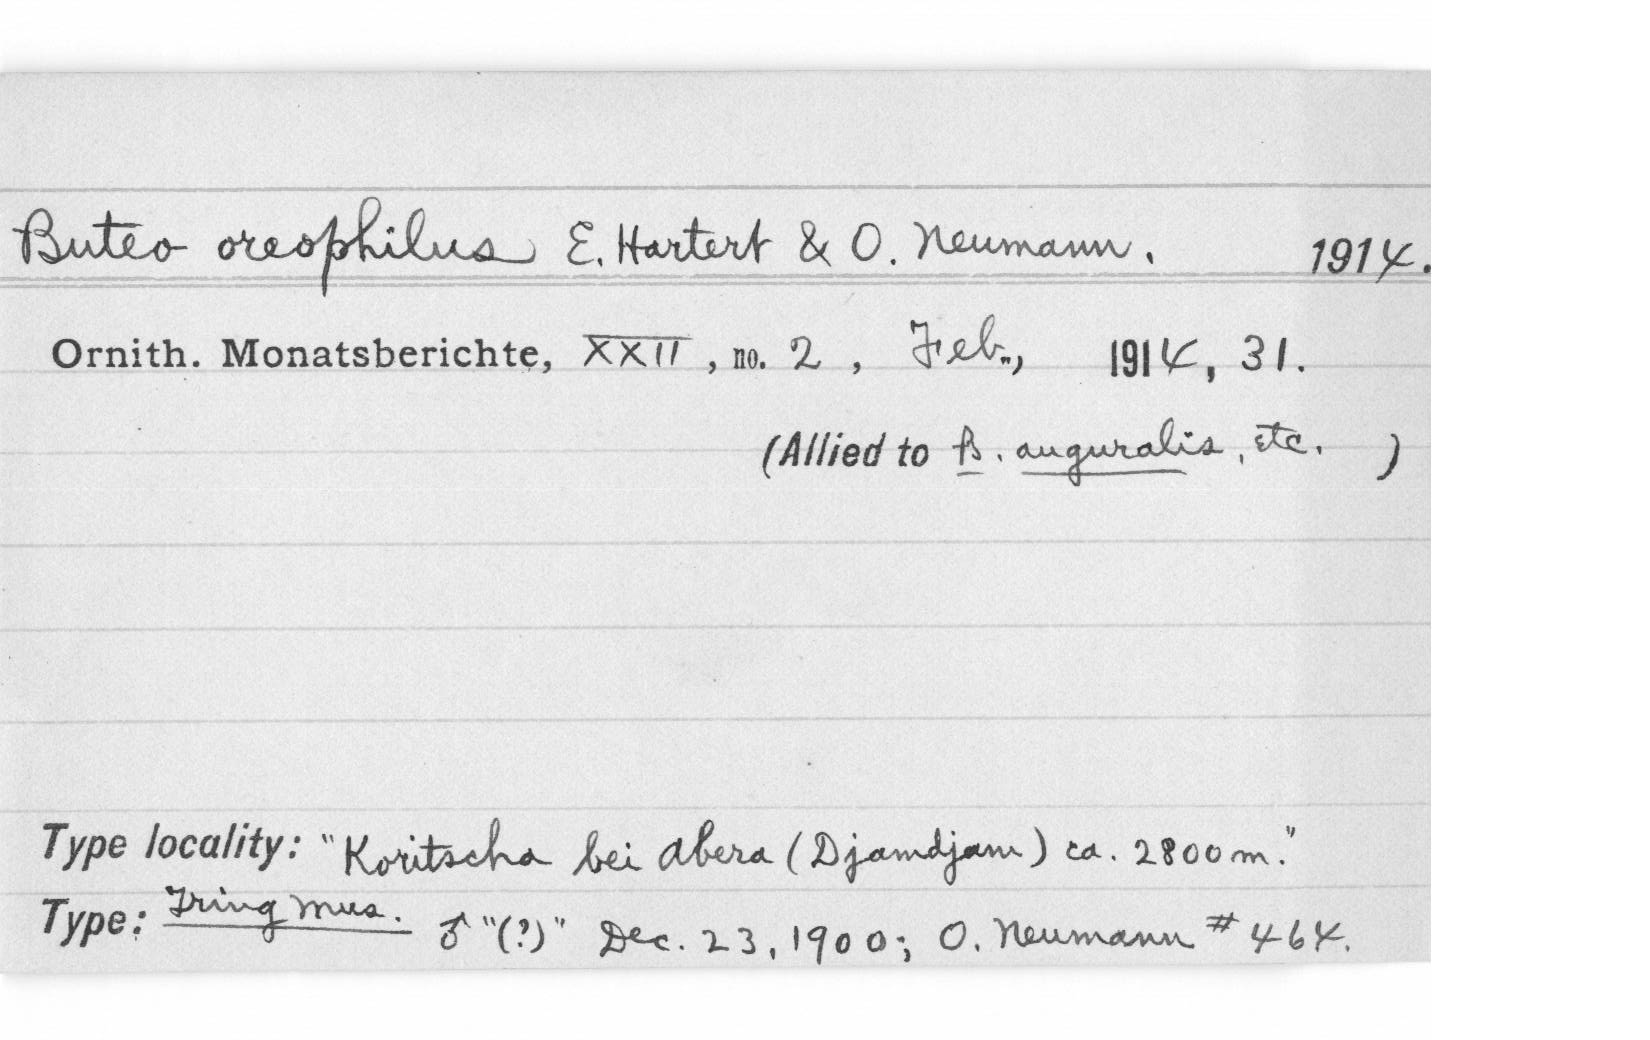 Buteo oreophilus E. Hartert & O. Neumann. 1914.
Ornith. Monatsberichte, XXII, no. 2, Feb., 1914, 31.
(Allied to B. auguralis, etc. )
Type locality: "Koritscha bei Abera (Djamdjam) ca. 2800 m."
Type: Tring Mus. ♂ "(?)" Dec. 23, 1900; O. Neumann # 464.